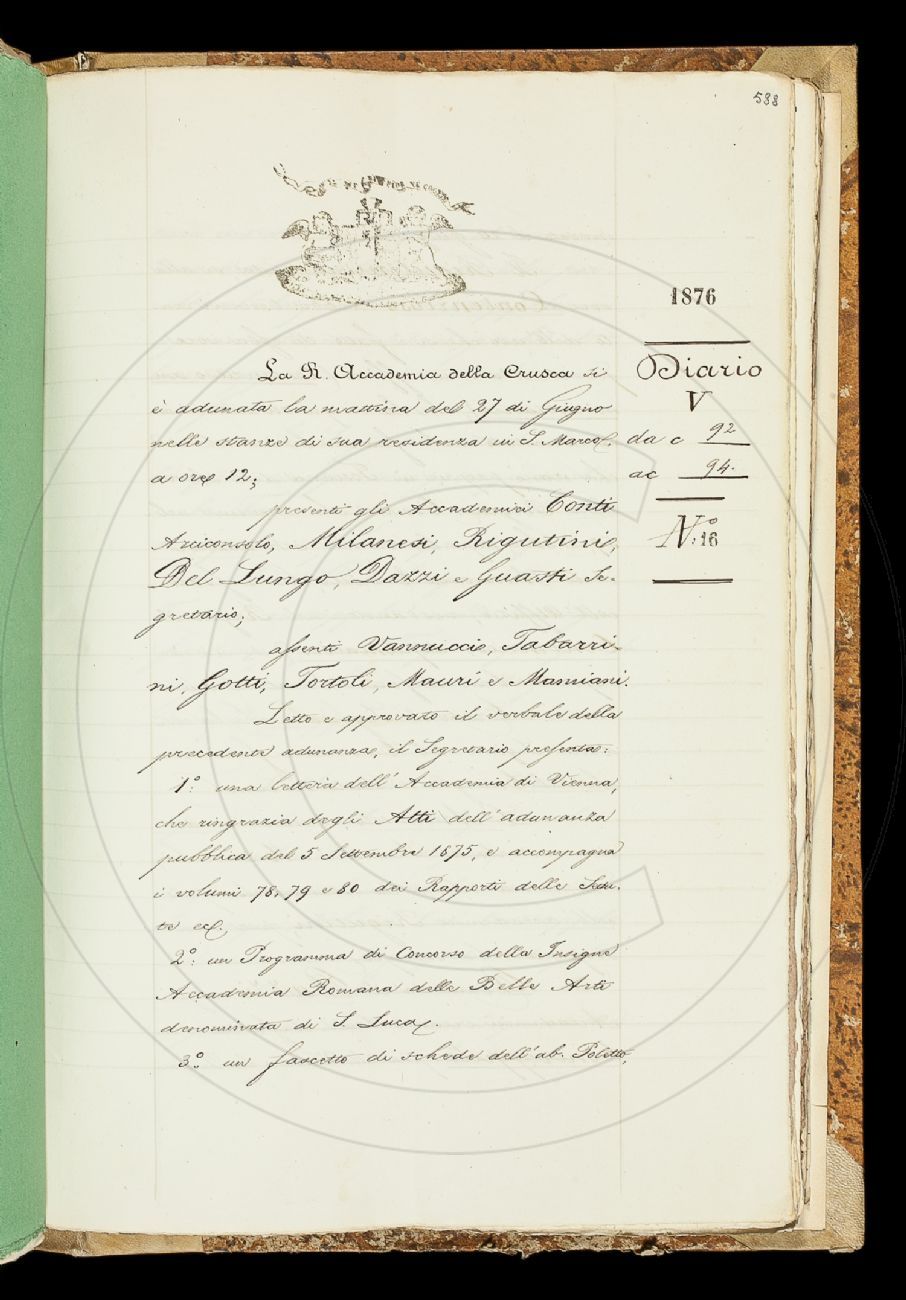 588
1876
Diario
V
da c 92
a c 94.
N.° 16
La R. Accademia della Crusca si
è adunata la mattina del 27 di Giugno
nelle stanze di sua residenza in S. Marco
a ore 12;
presenti gli Accademici Conti
Arciconsolo, Milanesi, Rigutini,
Del Lungo, Dazzi e Guasti Se-
gretario;
assenti Vannucci, Tabarri-
ni, Gotti, Tortoli, Mauri e Mamiani.
Letto e approvato il verbale della
precedente adunanza, il Segretario presenta:
1°: una lettera dell'Accademia di Vienna,
che ringrazia degli Atti dell'adunanza
pubblica del 5 Settembre 1875, e accompagna
i volumi 78, 79 e 80 dei Rapporti delle Sedu-
te ec.;
2°: un Programma di Concorso della Insigne
Accademia Romana delle Belle Arti
denominata di S. Luca.
3°: un fascetto di schede dell'ab. Poletto,